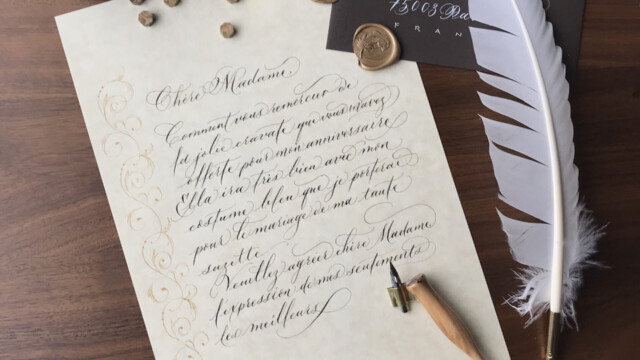 75003 Pa
FRAN
Chère Madame,
Comment vous remercier de
la jolie cravate que vous m'avez
offerte pour mon anniversaire
Ella ira très bien avec mon
costume bleu que je porterai
pour le mariage de ma tante
suzette.
Veuillez agréer chère Madame
l'expression de mes sentiments
les meilleurs